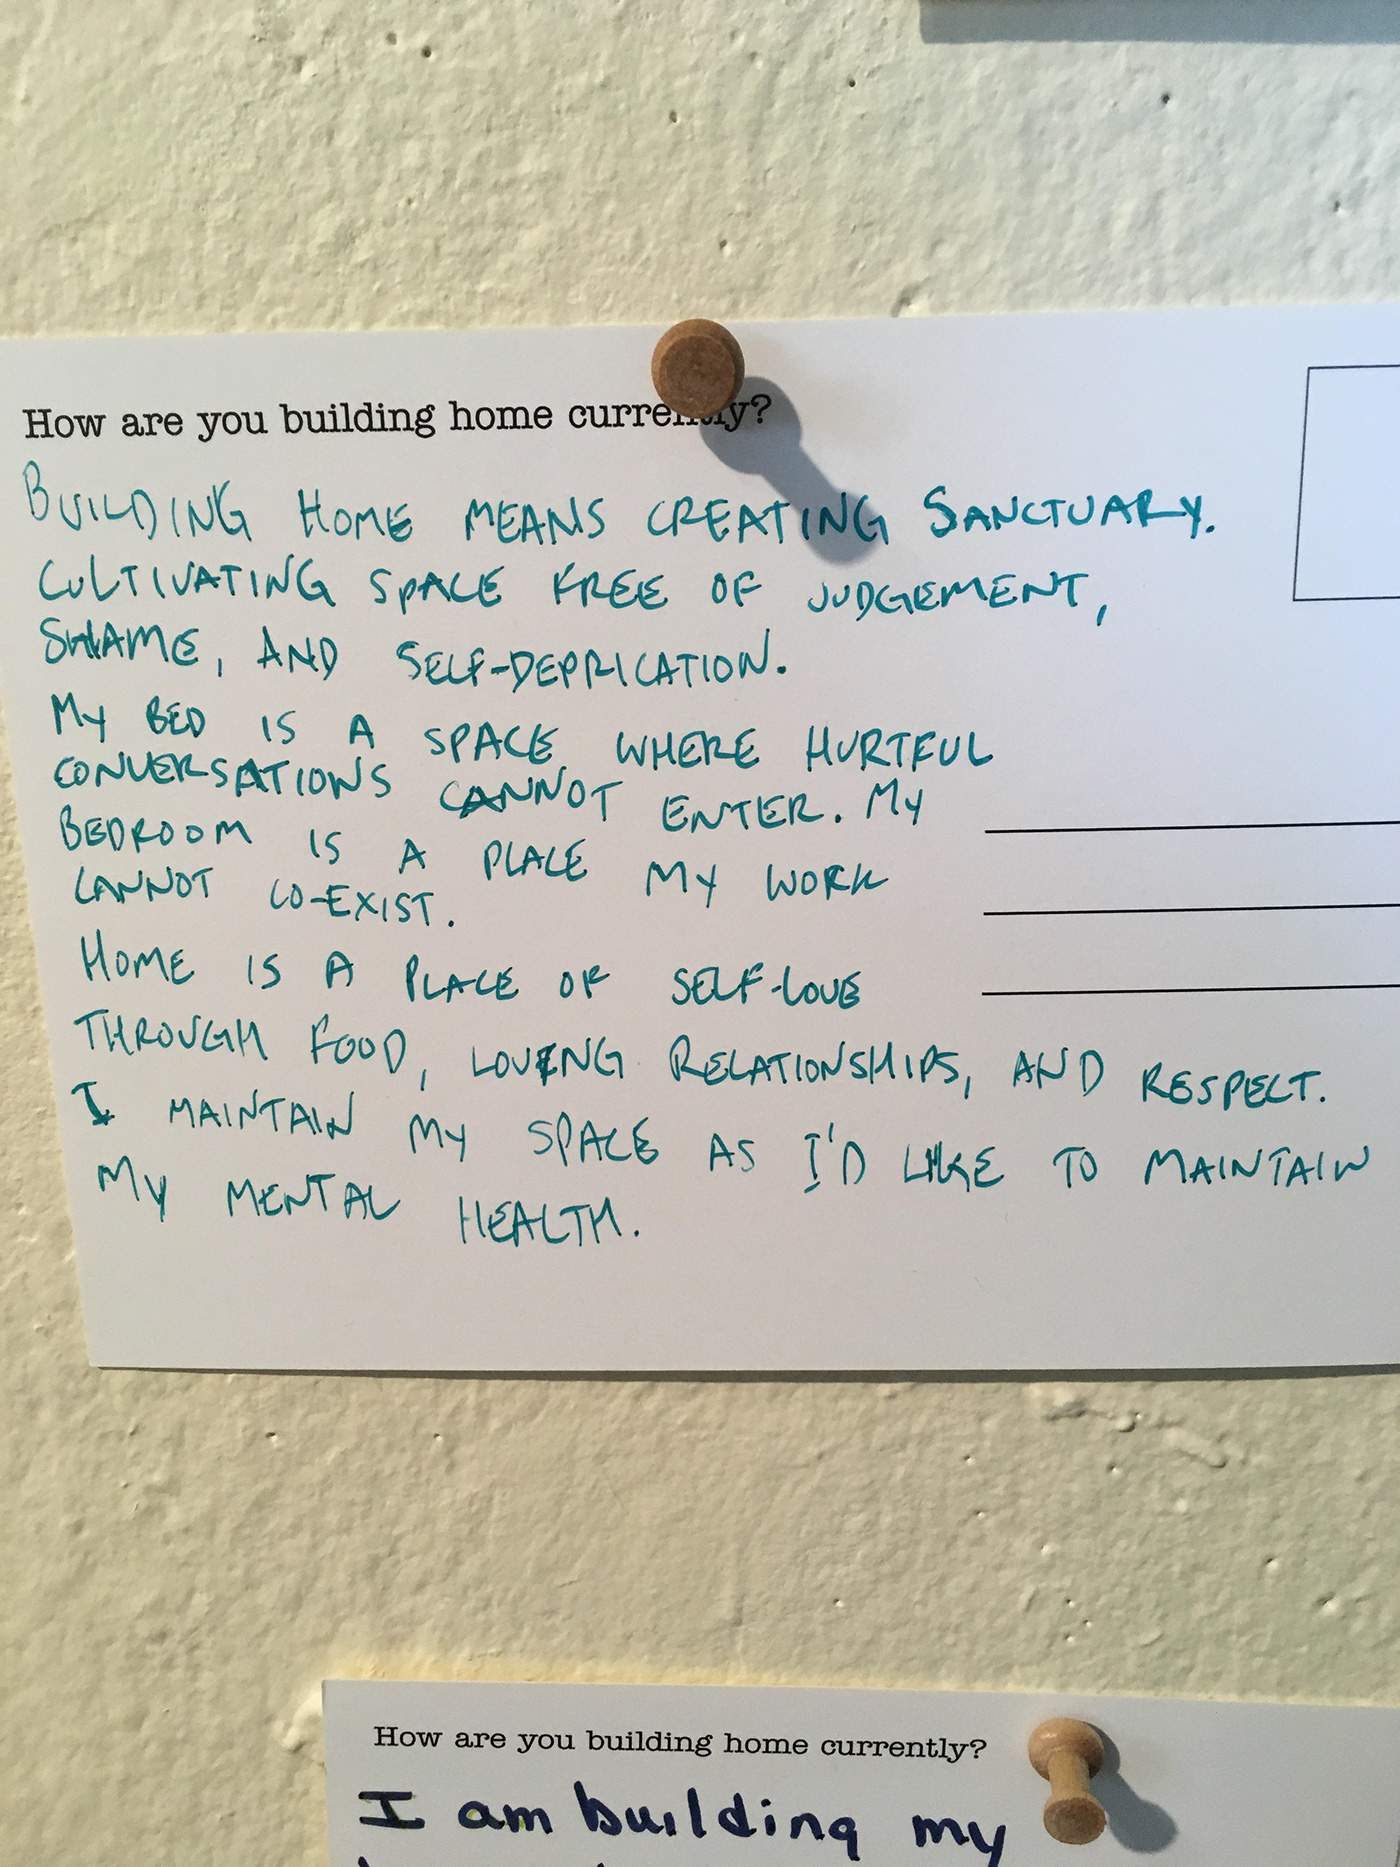 How are you building home currently?
BUILDING HOME MEANS CREATING SANCTUARY.
CULTIVATING SPACE FREE OF JUDGEMENT,
SHAME, AND SELF-DEPRICATION.
MY BED IS A SPACE WHERE HURTFUL
CONVERSATIONS CANNOT ENTER. MY
BEDROOM IS A PLACE MY WORK
CANNOT CO-EXIST.
HOME IS A PLACE OF SELF-LOVE
THROUGH FOOD, LOVING RELATIONSHIPS, AND RESPECT.
I MAINTAIN MY SPACE AS I'D LIKE TO MAINTAIN
MY MENTAL HEALTH.
How are you building home currently?
I am building my